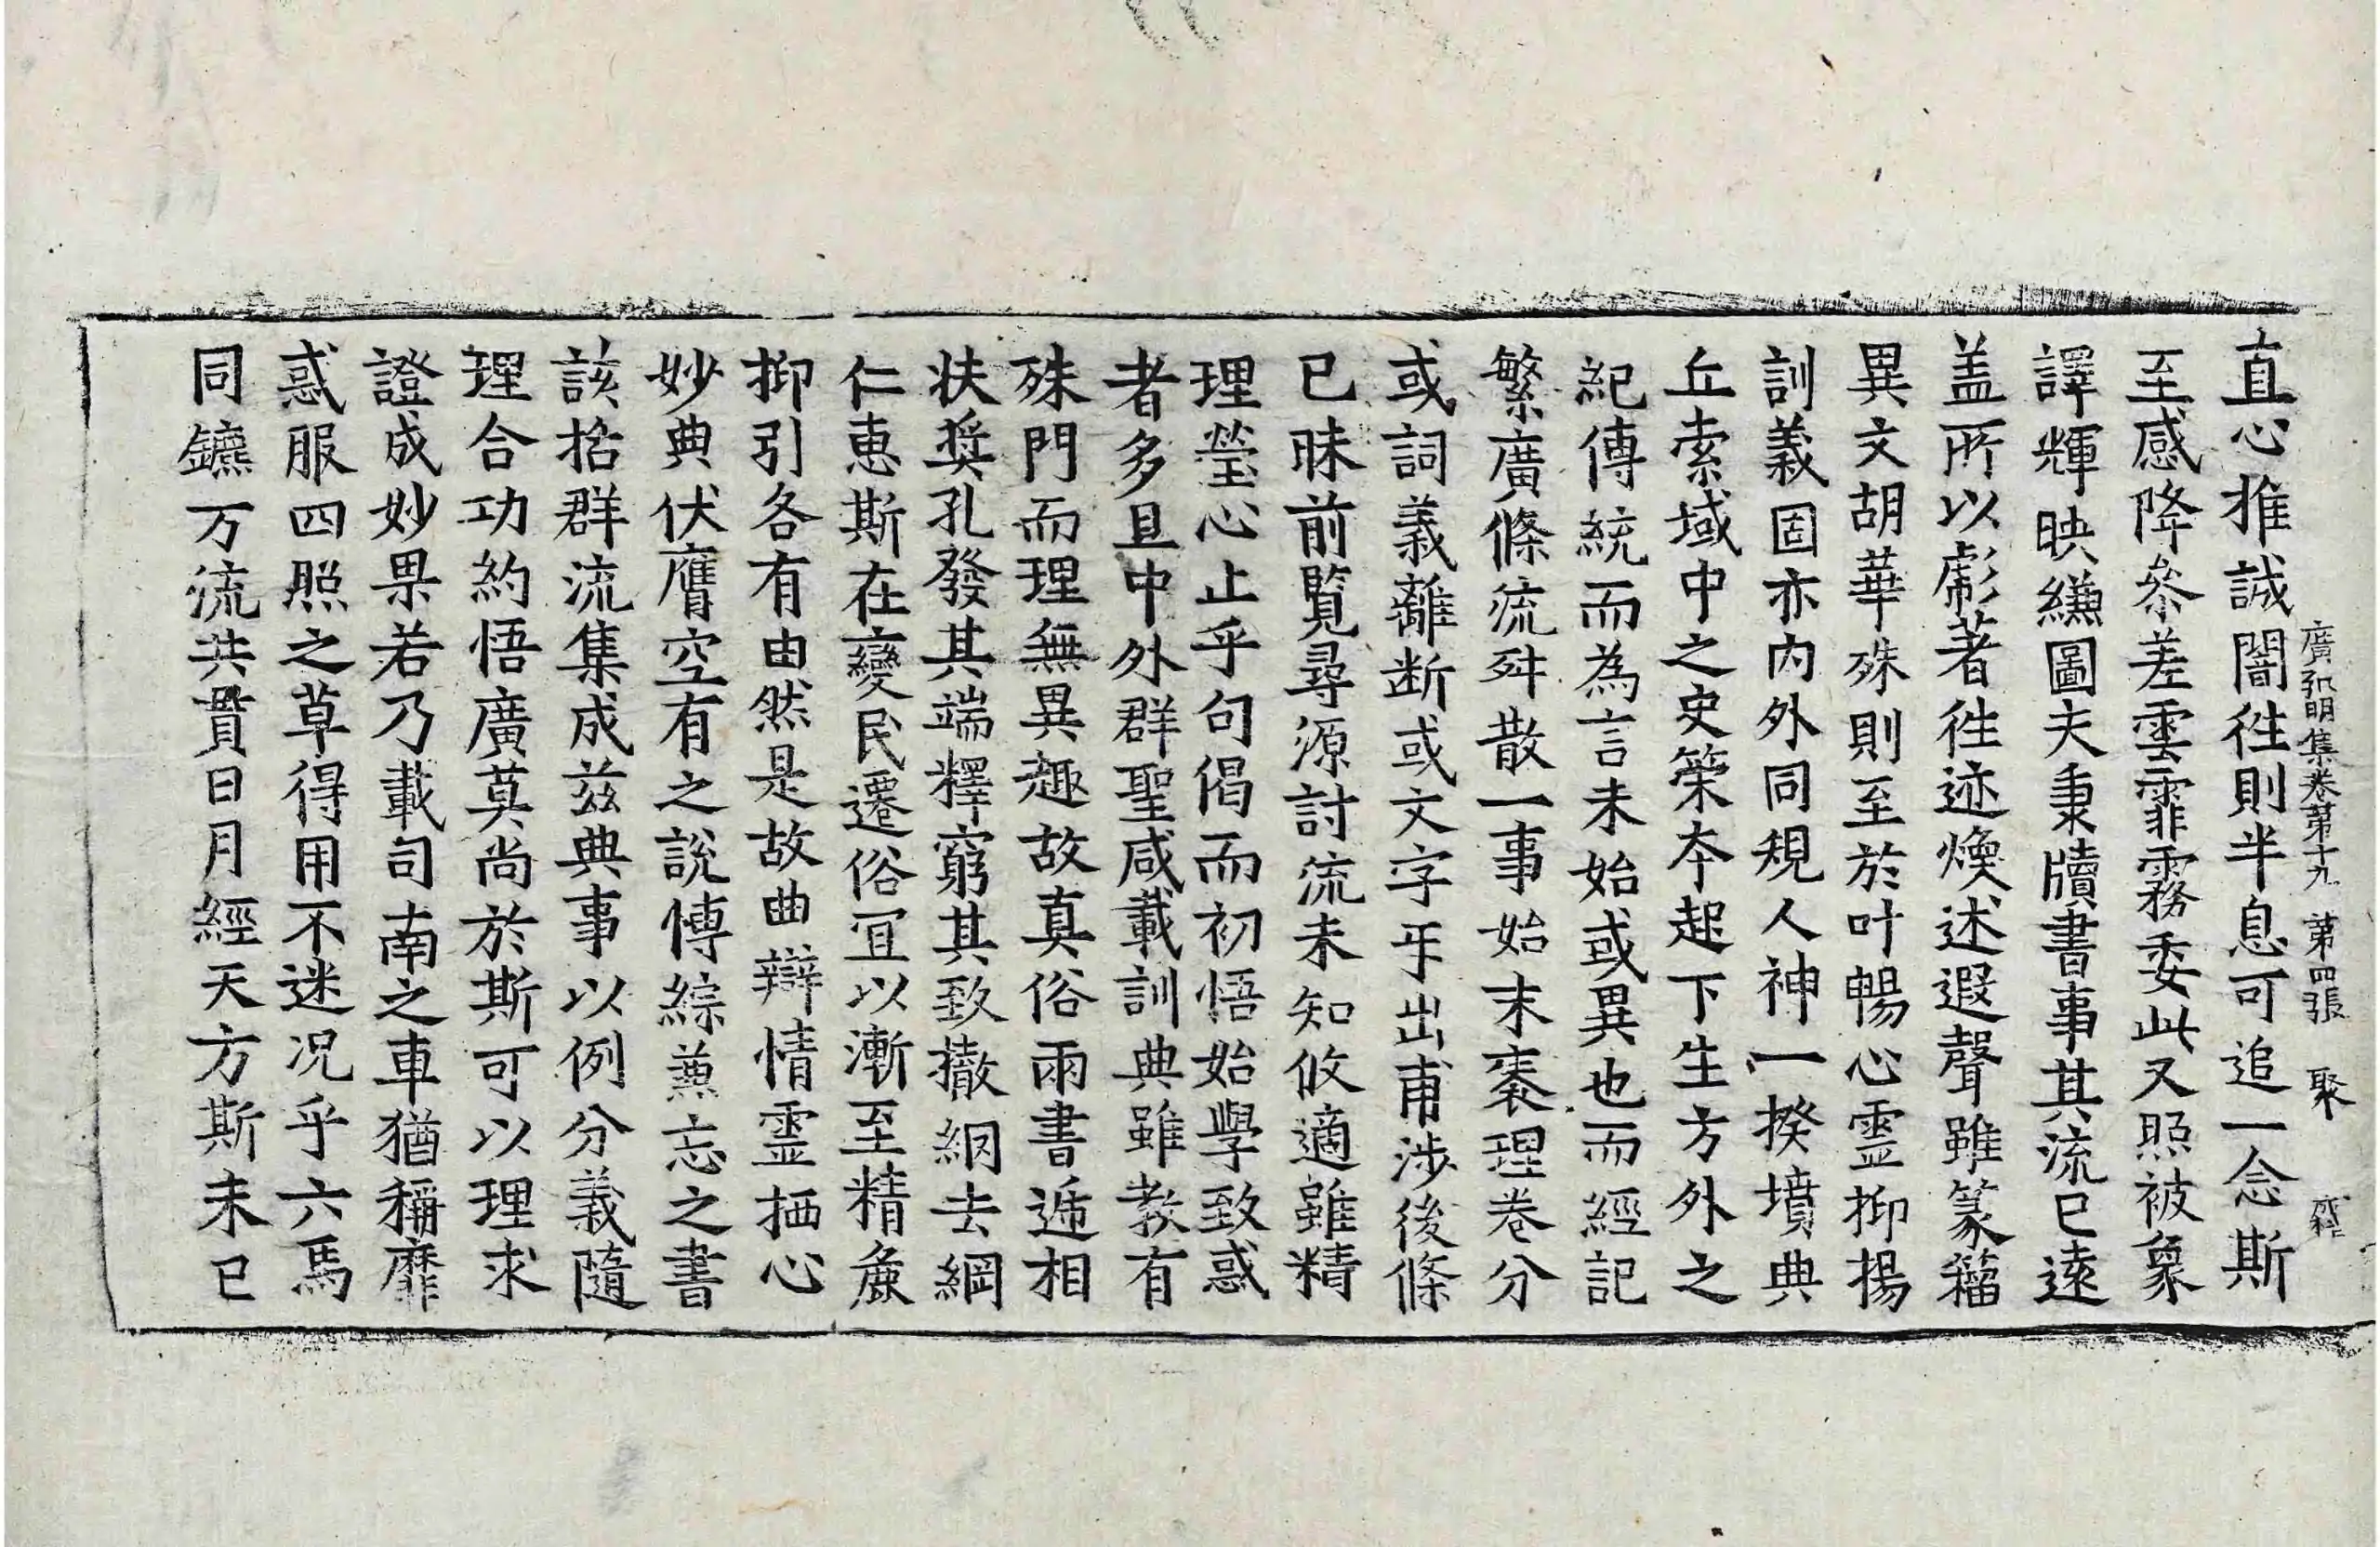 廣弘明集卷第十九 第四張 聚
直心推誠闇徃則半息可追一念斯
至感降叅差雲霏霧委此又照被象
譯輝映縑圖夫秉牘書事其流已遠
盖所以彪著徃迹煥述遐聲雖篆籀
異文胡華殊則至於叶暢心霊抑揚
訓義固亦内外同規人神一揆墳典
丘索域中之史策夲起下生方外之
紀傳統而為言未始或異也而經記
繁廣條流舛散一事始末袠理卷分
或詞義離断或文字㸦出甫涉後條
已昧前覧尋源討流未知攸適雖精
理瑩心止乎句偈而初悟始學致惑
者多且中外群聖咸載訓典雖教有
殊門而理無異趣故真俗兩書遞相
扶奬孔發其端釋窮其致撤網去綱
仁惠斯在變民遷俗冝以漸至精麁
抑引各有由然是故曲辯情霊栖心
妙典伏膺空有之說愽綜兼忘之書
該括群流集成兹典事以例分義隨
理合功約悟廣莫尚於斯可以理求
證成妙果若乃載司南之車猶稱靡
惑服四照之草得用不迷况乎六馬
同鑣万流共貫日月經天方斯未已